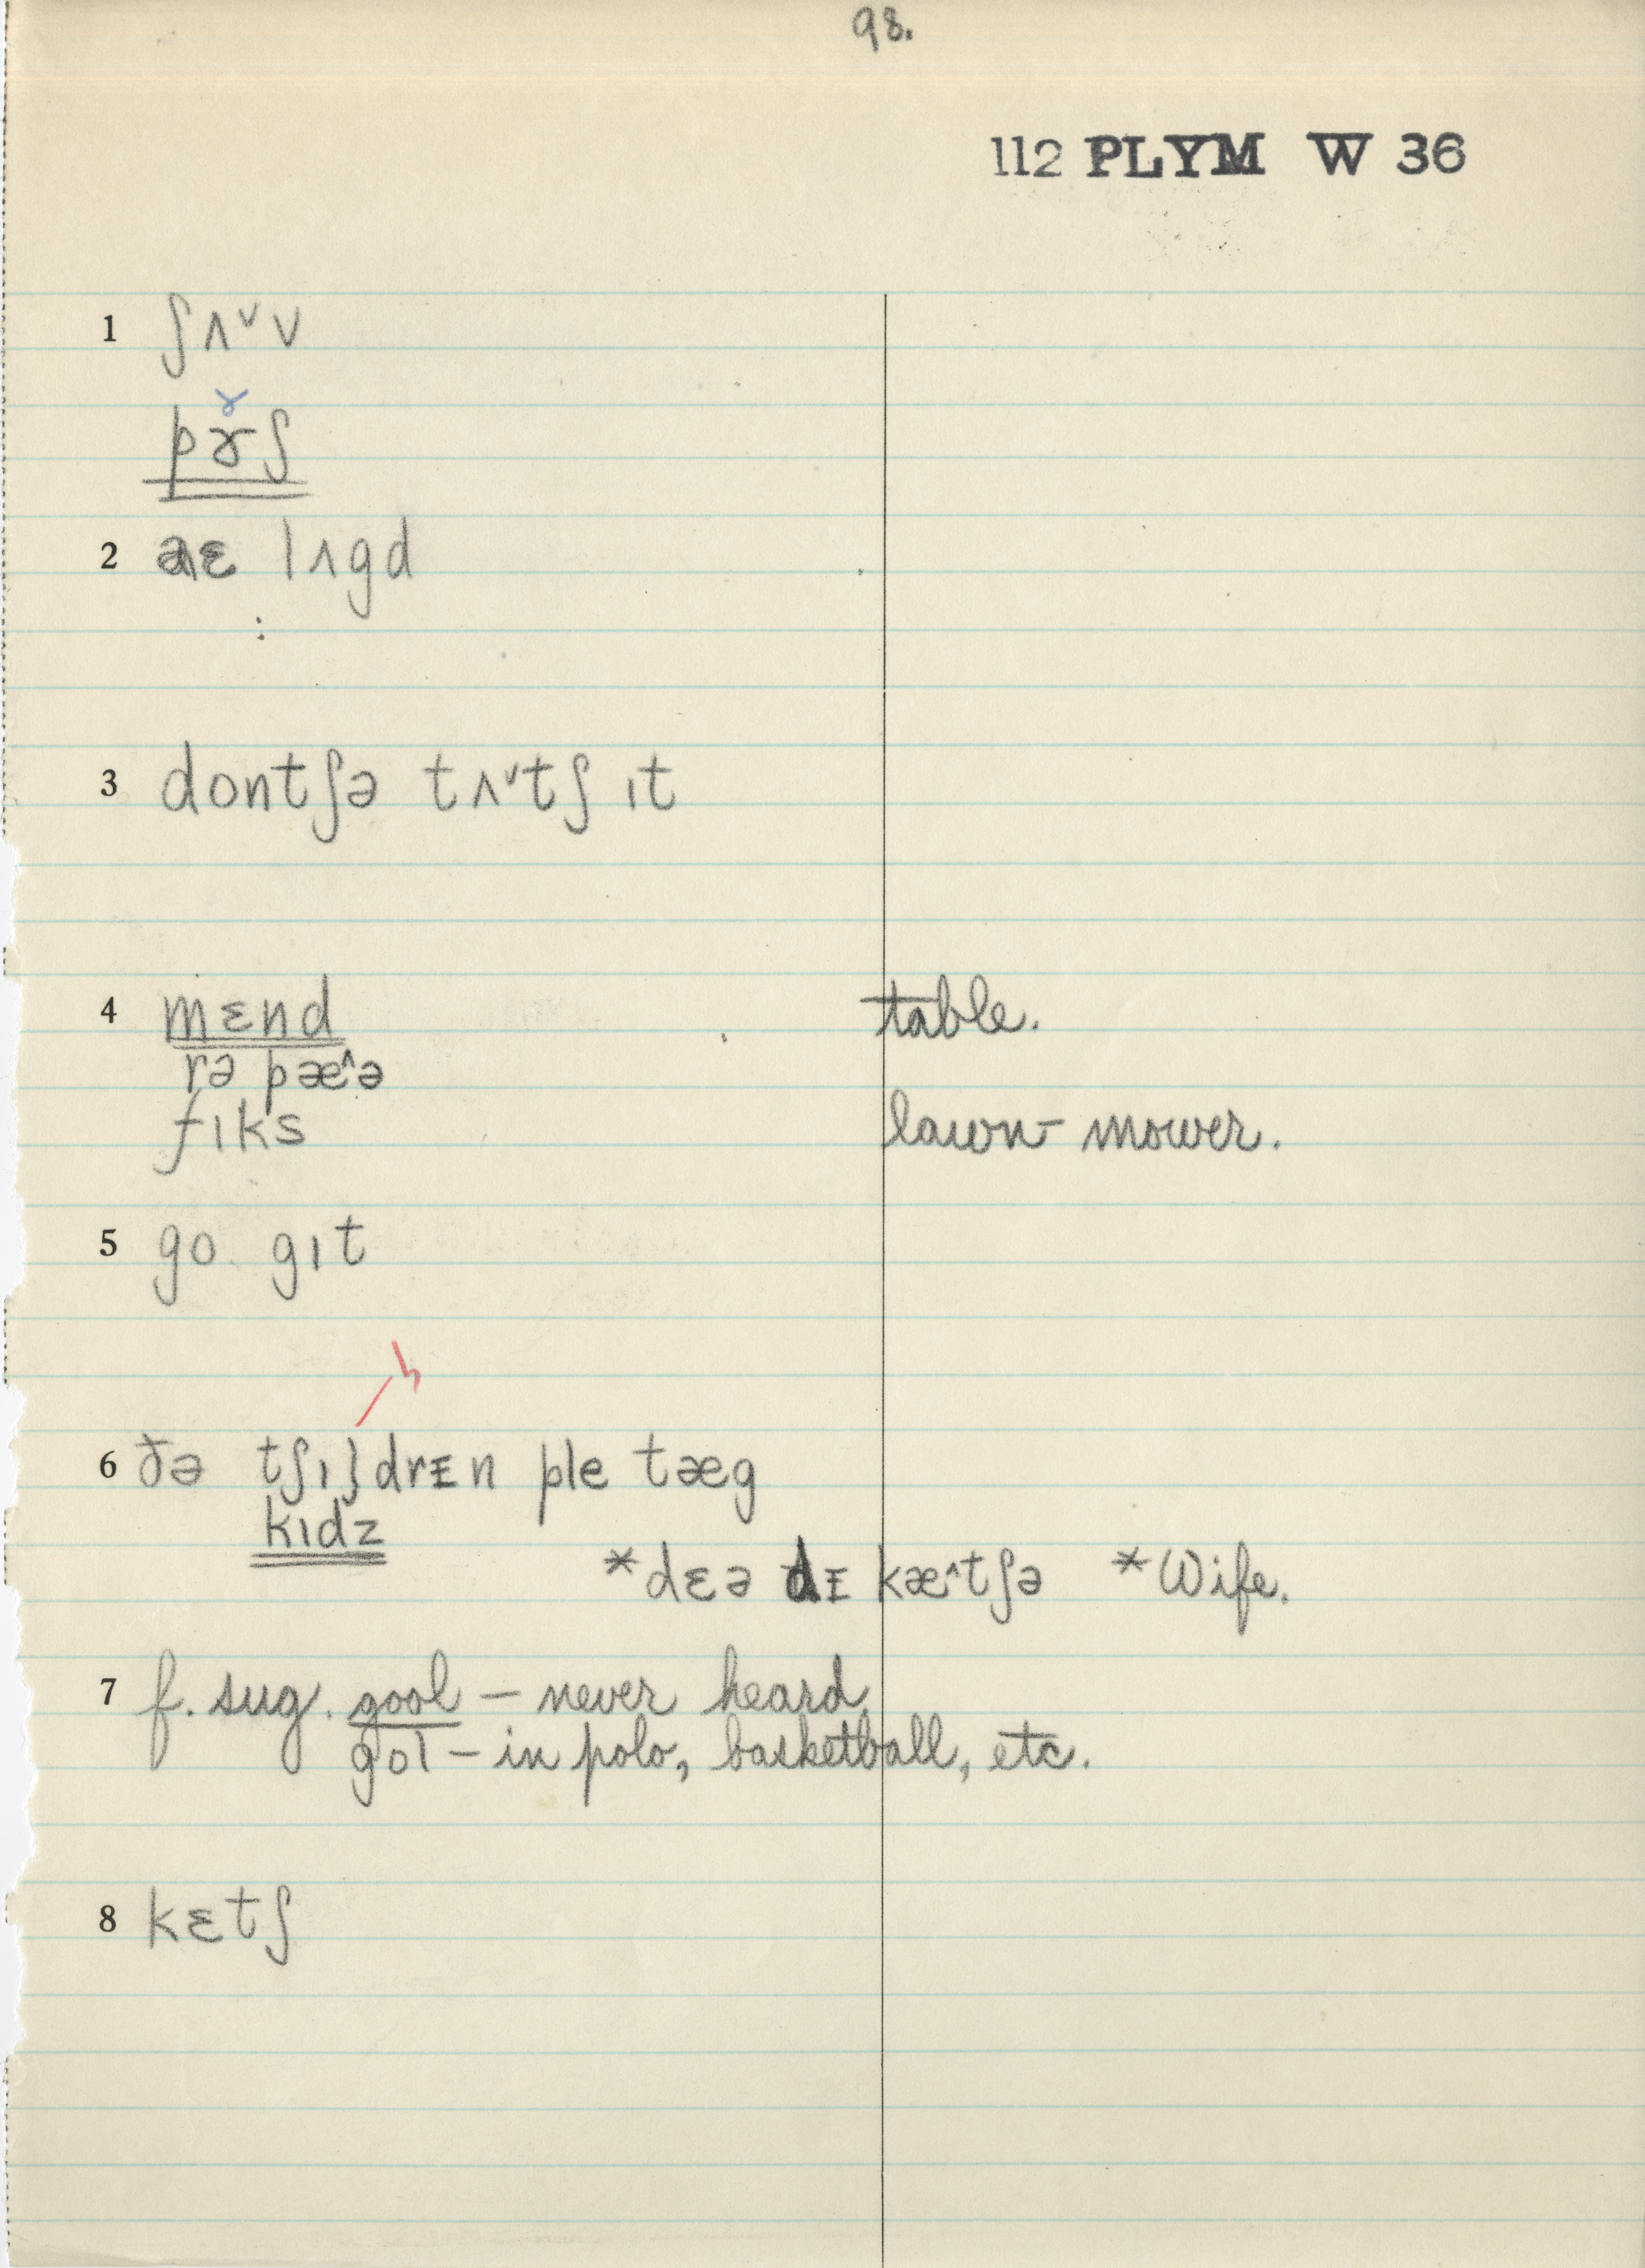 98.
112 PLYM W 36
1 ʃʌ˅v
pɤ̆ʃ
2 lʌgd
3 dontʃə tʌ˅tʃ ɪt
4 mɛnd table.
rə pæ^ə
fɪks lawn-mower.
5 go gɪt
6 ðə tʃɪldrᴇn ple tæg
kɪdz
*dɛə dᴇ kæ^tʃə *Wife.
7 f. sug. gool – never heard
gol – in polo, basketball, etc.
8 kɛtʃ